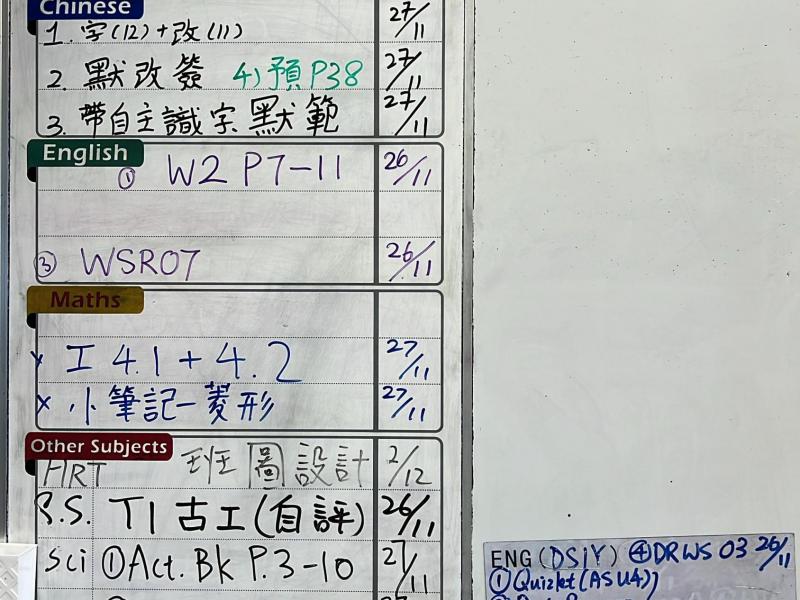 Chinese
1. 字(12)+改(11) 27/11
2. 默改簽 4)預P38 27/11
3. 帶自主識字默範 27/11
English
① W2 P7-11 26/11
③ WSR07 26/11
Maths
x 工 4.1 + 4.2 27/11
x 小筆記-菱形 27/11
Other Subjects
HRT 班圖設計 2/12
S.S. T1 古工(自評) 26/11
Sci ①Act. Bk P.3-10 27/11
ENG (DSiY) ④DRWS 03 26/11
①Quizlet (ASU4)